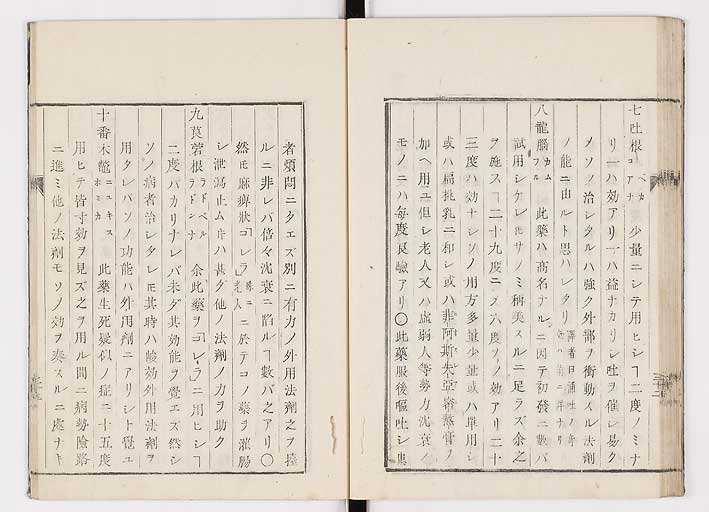 七吐根 ペカコアナ 少量ニシテ用ヒシヿ二度ノミナ
リ一ハ効アリ一ハ益ナカリシ吐ヲ催シ易ク
メソノ治シタルハ強ク外部ヲ衝動スル法剤
ノ能ニ由ルト思ハレタリ
八龍脳 カムフル 此薬ハ高名ナルニ因テ初發ニ數バ
試用シケレ𪜈サノミ稱美スルニ足ラズ余之
ヲ施スヿ二十九度ニメ六度ソノ効アリ二十
三度ハ効ナシソノ用方多量少量或ハ単用シ
或ハ扁桃乳ニ和シ或ハ非阿斯朱亞 ヲ
加ヘ用ユ但シ老人又ハ虚弱人等勢力沈衰ノ
モノニハ毎度良驗アリ〇此薬服後嘔吐シ患
者煩悶ニタエズ別ニ有力ノ外用法劑之ヲ
ルニ非レバ倍々沈衰ニ陥ルヿ數バ之アリ〇
然𪜈麻痺状「コレラ」老人ニ於テコノ薬ヲ灌腸
シ泄瀉止ムキハ甚ダ他ノ法剤ノ力ヲ助ク
九莨菪根 ラドベルラドンナ 余此薬ヲ「コレイラ」ニ用ヒシヿ
二度バカリナレバ未ダ其効能ヲ覺エズ然シ
ソノ病者治シタレ𪜈其時ハ峻効外用法劑ヲ
用タレバソノ功能ハ外用劑ニアリシト覺ユ
十番木鼈 ニユキスホミカ 此薬生死疑似ノ症二十五度
用ヒテ皆寸効ヲ見ズ之ヲ用ル間ニ病勢險路
ニ進ミ他ノ法劑モソノ効ヲ奏スルニ處ナキ